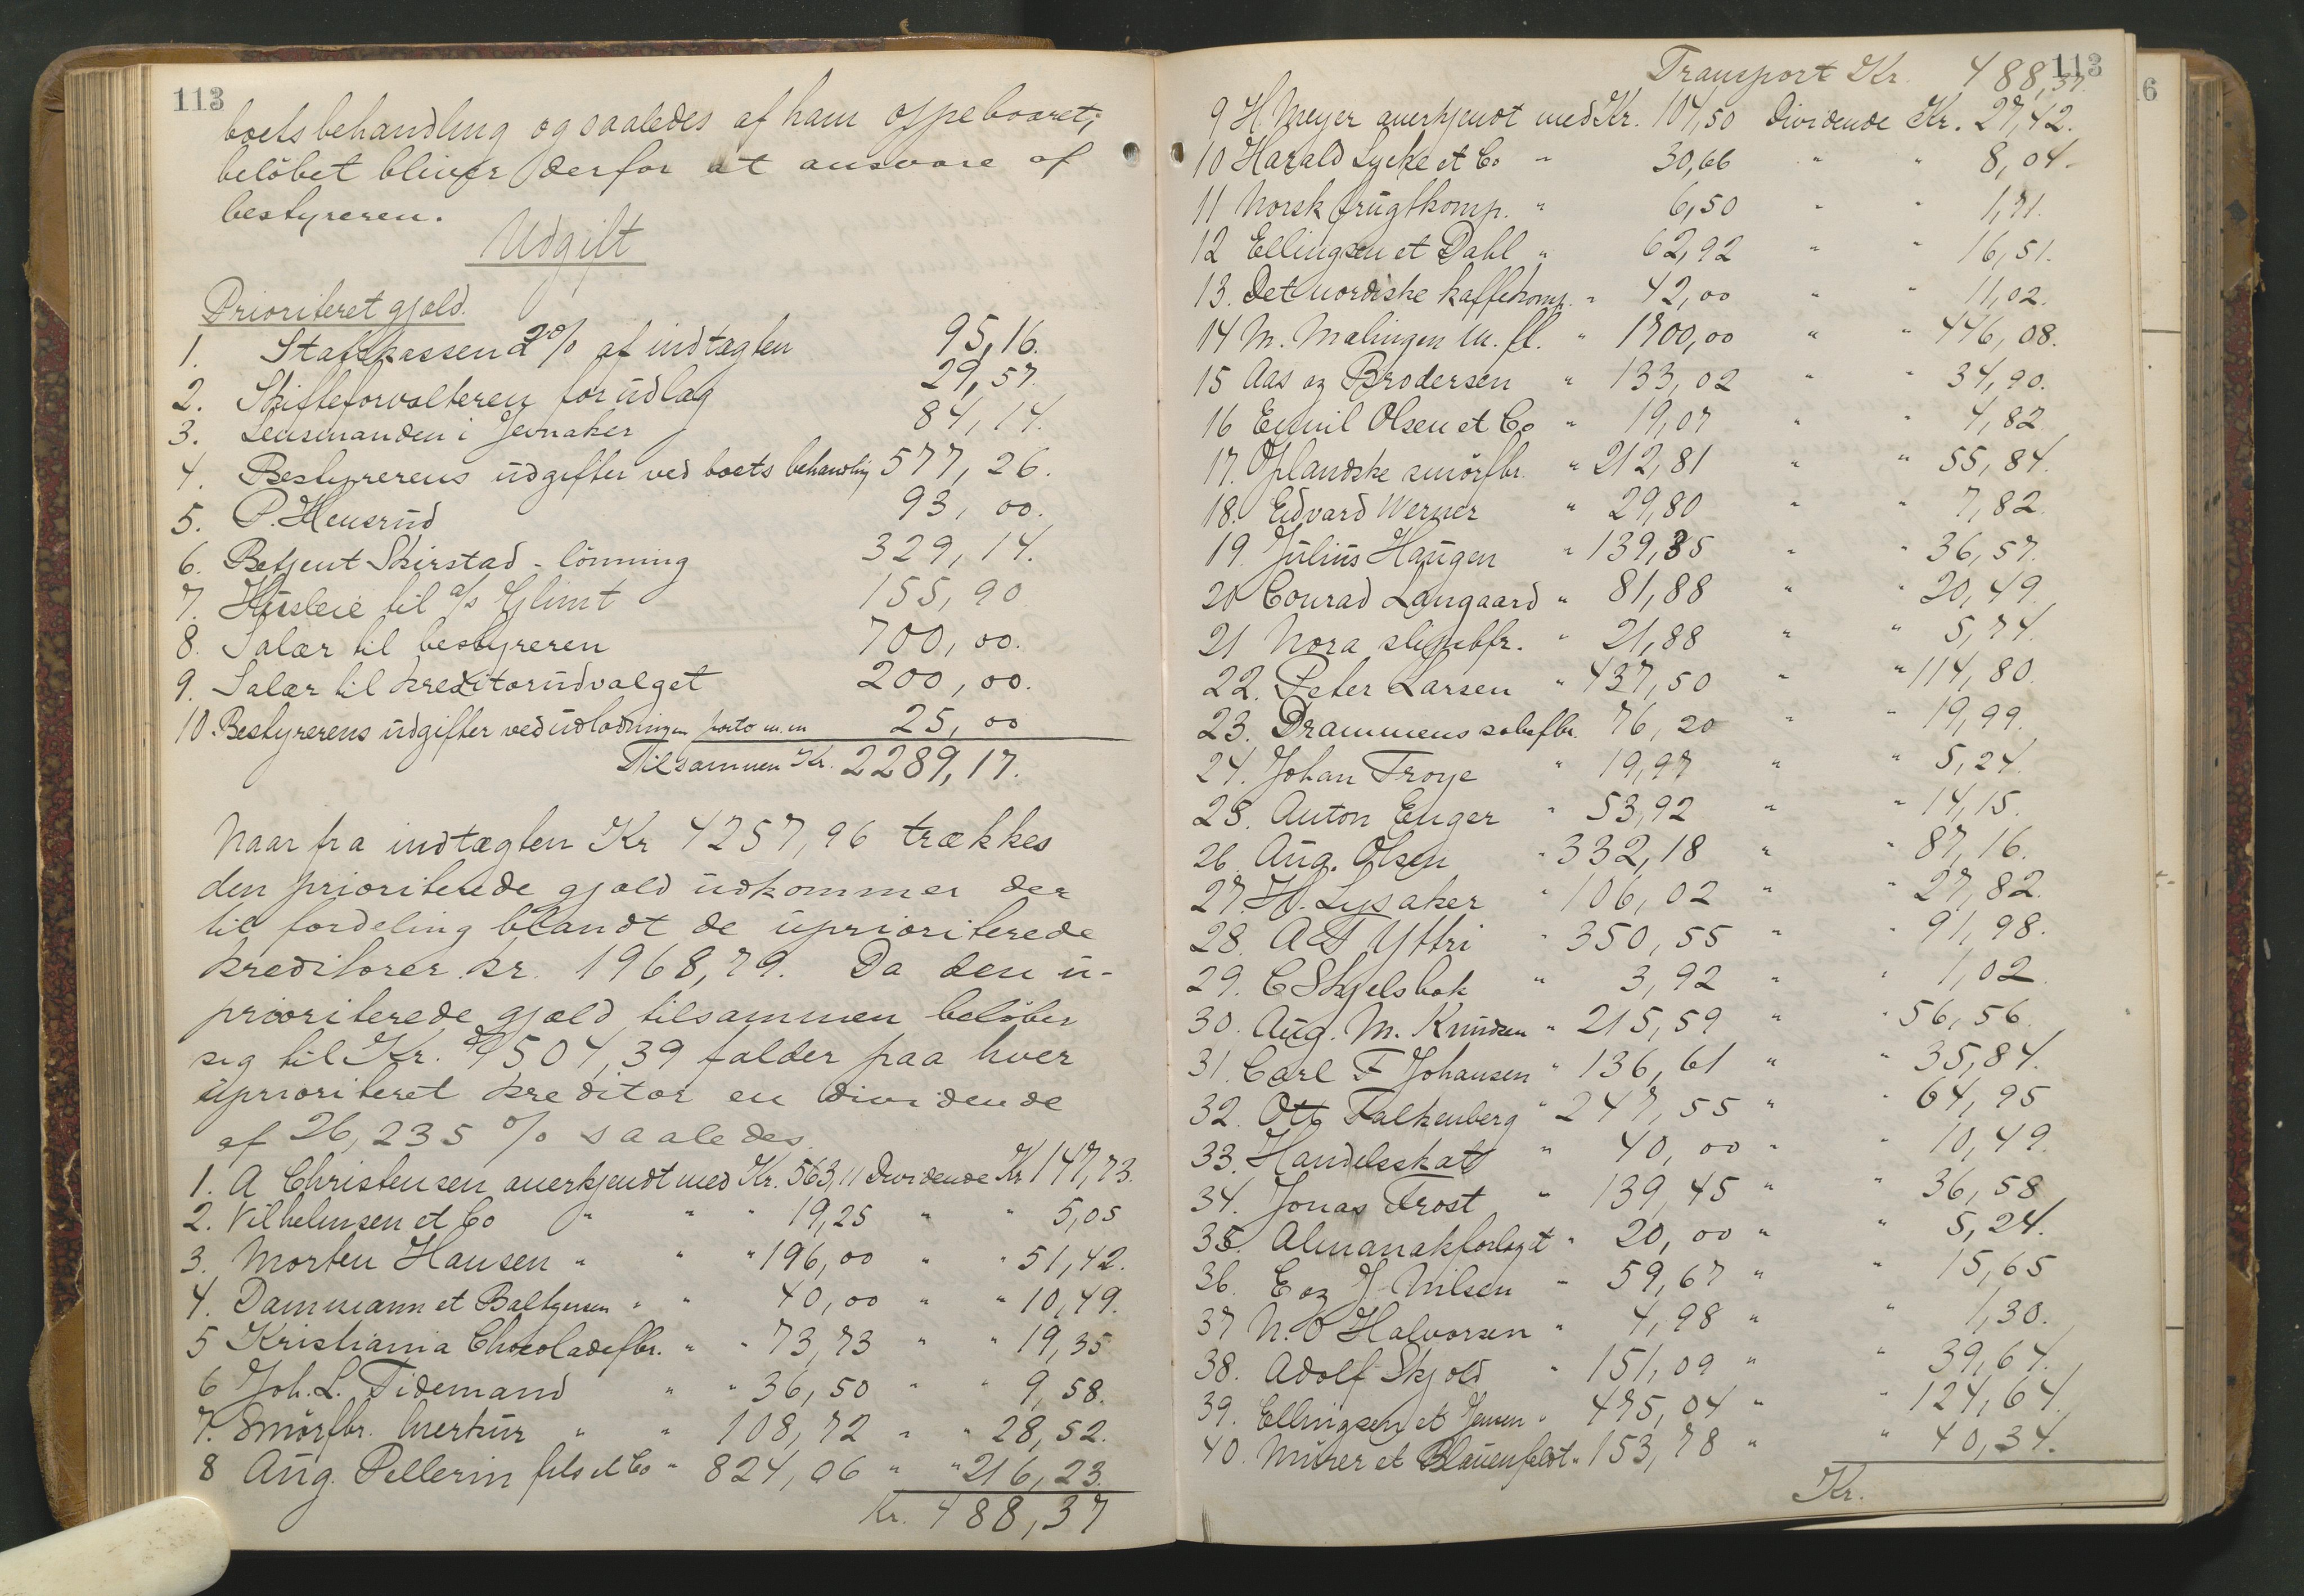 113
boets behandling og saaledes af ham oppebaaret;
beløbet bliver derfor at ansvare af
bestyreren.
Udgift
Prioriteret gjæld.
1. Statskassen 2% af indtægten 95,16.
2. Skifteforvalteren for udlæg 29,57.
3. Lensmanden i Jevnaker 84,14.
4. Bestyrerens udgifter ved boets behandling 577,26.
5. P. Heusrud 93,00.
6. Betjent Skirstad - lønning 329,14.
7. Husleie til a/s Glimt 155,90
8. Salær til bestyreren 700,00.
9. Salær til kreditorudvalget 200,00.
10. Bestyrerens udgifter ved udlodningen porto m.m 25,00
Tilsammen Kr. 2289,17.
Naar fra indtægten Kr 4257,96 trækkes
den prioriterede gjæld udkommer der
til fordeling blandt de uprioriterede
kreditorer kr. 1968,79. Da den u-
prioriterede gjæld tilsammen beløber
sig til Kr. 7504,39 falder paa hver
uprioriteret kreditor en dividende
af 26,235 % saaledes.
1. A Christensen anerkjendt med Kr. 563,11 Dividende Kr 147,73.
2. Vilhelmsen et Co " " " 19,25 " " 5,05
3. Morten Hansen " " " 196,00 " " 51,42.
4. Dammann et Baltzersen " " 40,00 " " 10,49.
5 Kristiania Chocoladefbr. " " 73,73 " " 19,35
6 Joh. L. Tidemand " " 36,50 " " 9,58.
7. Smørfbr. Merkur " " 108,72 " " 28,52.
8 Aug. Pellerin fils et Co " 824,06 " " 216,23.
Kr. 488,37
113
Transport Kr. 488,37.
9 H. Meyer anerkjendt med Kr. 104,50 Dividende Kr. 27,42.
10 Harald Lycke et Co " 30,66 " " 8,04.
11 Norsk frugtkomp. " 6,50 " " 1,71.
12 Ellingsen et Dahl " 62,92 " " 16,51.
13. Det nordiske kaffekomp. " 42,00 " " 11,02.
14 M. Malingen m. fl. " 1700,00 " " 446,08.
15 Aas og Brodersen " 133,02 " " 34,90.
16 Emil Olsen et Co " 19,07 " " 4,82
17. Oplandske smørfbr. " 212,81 " " 55,84.
18. Edvard Werner " 29,80 " " 7,82
19 Julius Haugen " 139,35 " " 36,57.
20 Conrad Langaard " 81,88 " " 20,49.
21 Nora 21,88 " " 5,74.
22. Peter Larsen " 437,50 " " 114,80.
23. Drammens sæbefbr. 76,20 " " 19,99.
24. Johan Troye " 19,97 " " 5,24.
25. Anton Enger " 53,92 " " 14,15.
26. Aug. Olsen " 332,18 " " 87,16.
27. H. Lysaker " 106,02 " " 27,82.
28. A F Yttri " 350,55 " " 91,98.
29. C Skjelsbok " 3,92 " " 1,02
30. Aug. M. Knudsen " 215,59 " " 56,56.
31. Carl F Johansen " 136,61 " " 35,84.
32. Otto Falkenberg " 247,55 " " 64,95
33. Handelsskat " 40,00 " " 10,49.
34. Jonas Frost " 139,45 " " 36,58
35. Almanakforlaget " 20,00 " " 5,24.
36. E og J. Nilsen " 59,67 " " 15,65
37 N. O Halvorsen " 4,98 " " 1,30.
38. Adolf Skjold " 151,09 " " 39,64.
39. Ellingsen et Jensen " 475,04 " " 124,64.
40. Müner et Blauenfeldt " 153,78 " " 40,34.
Kr.
6